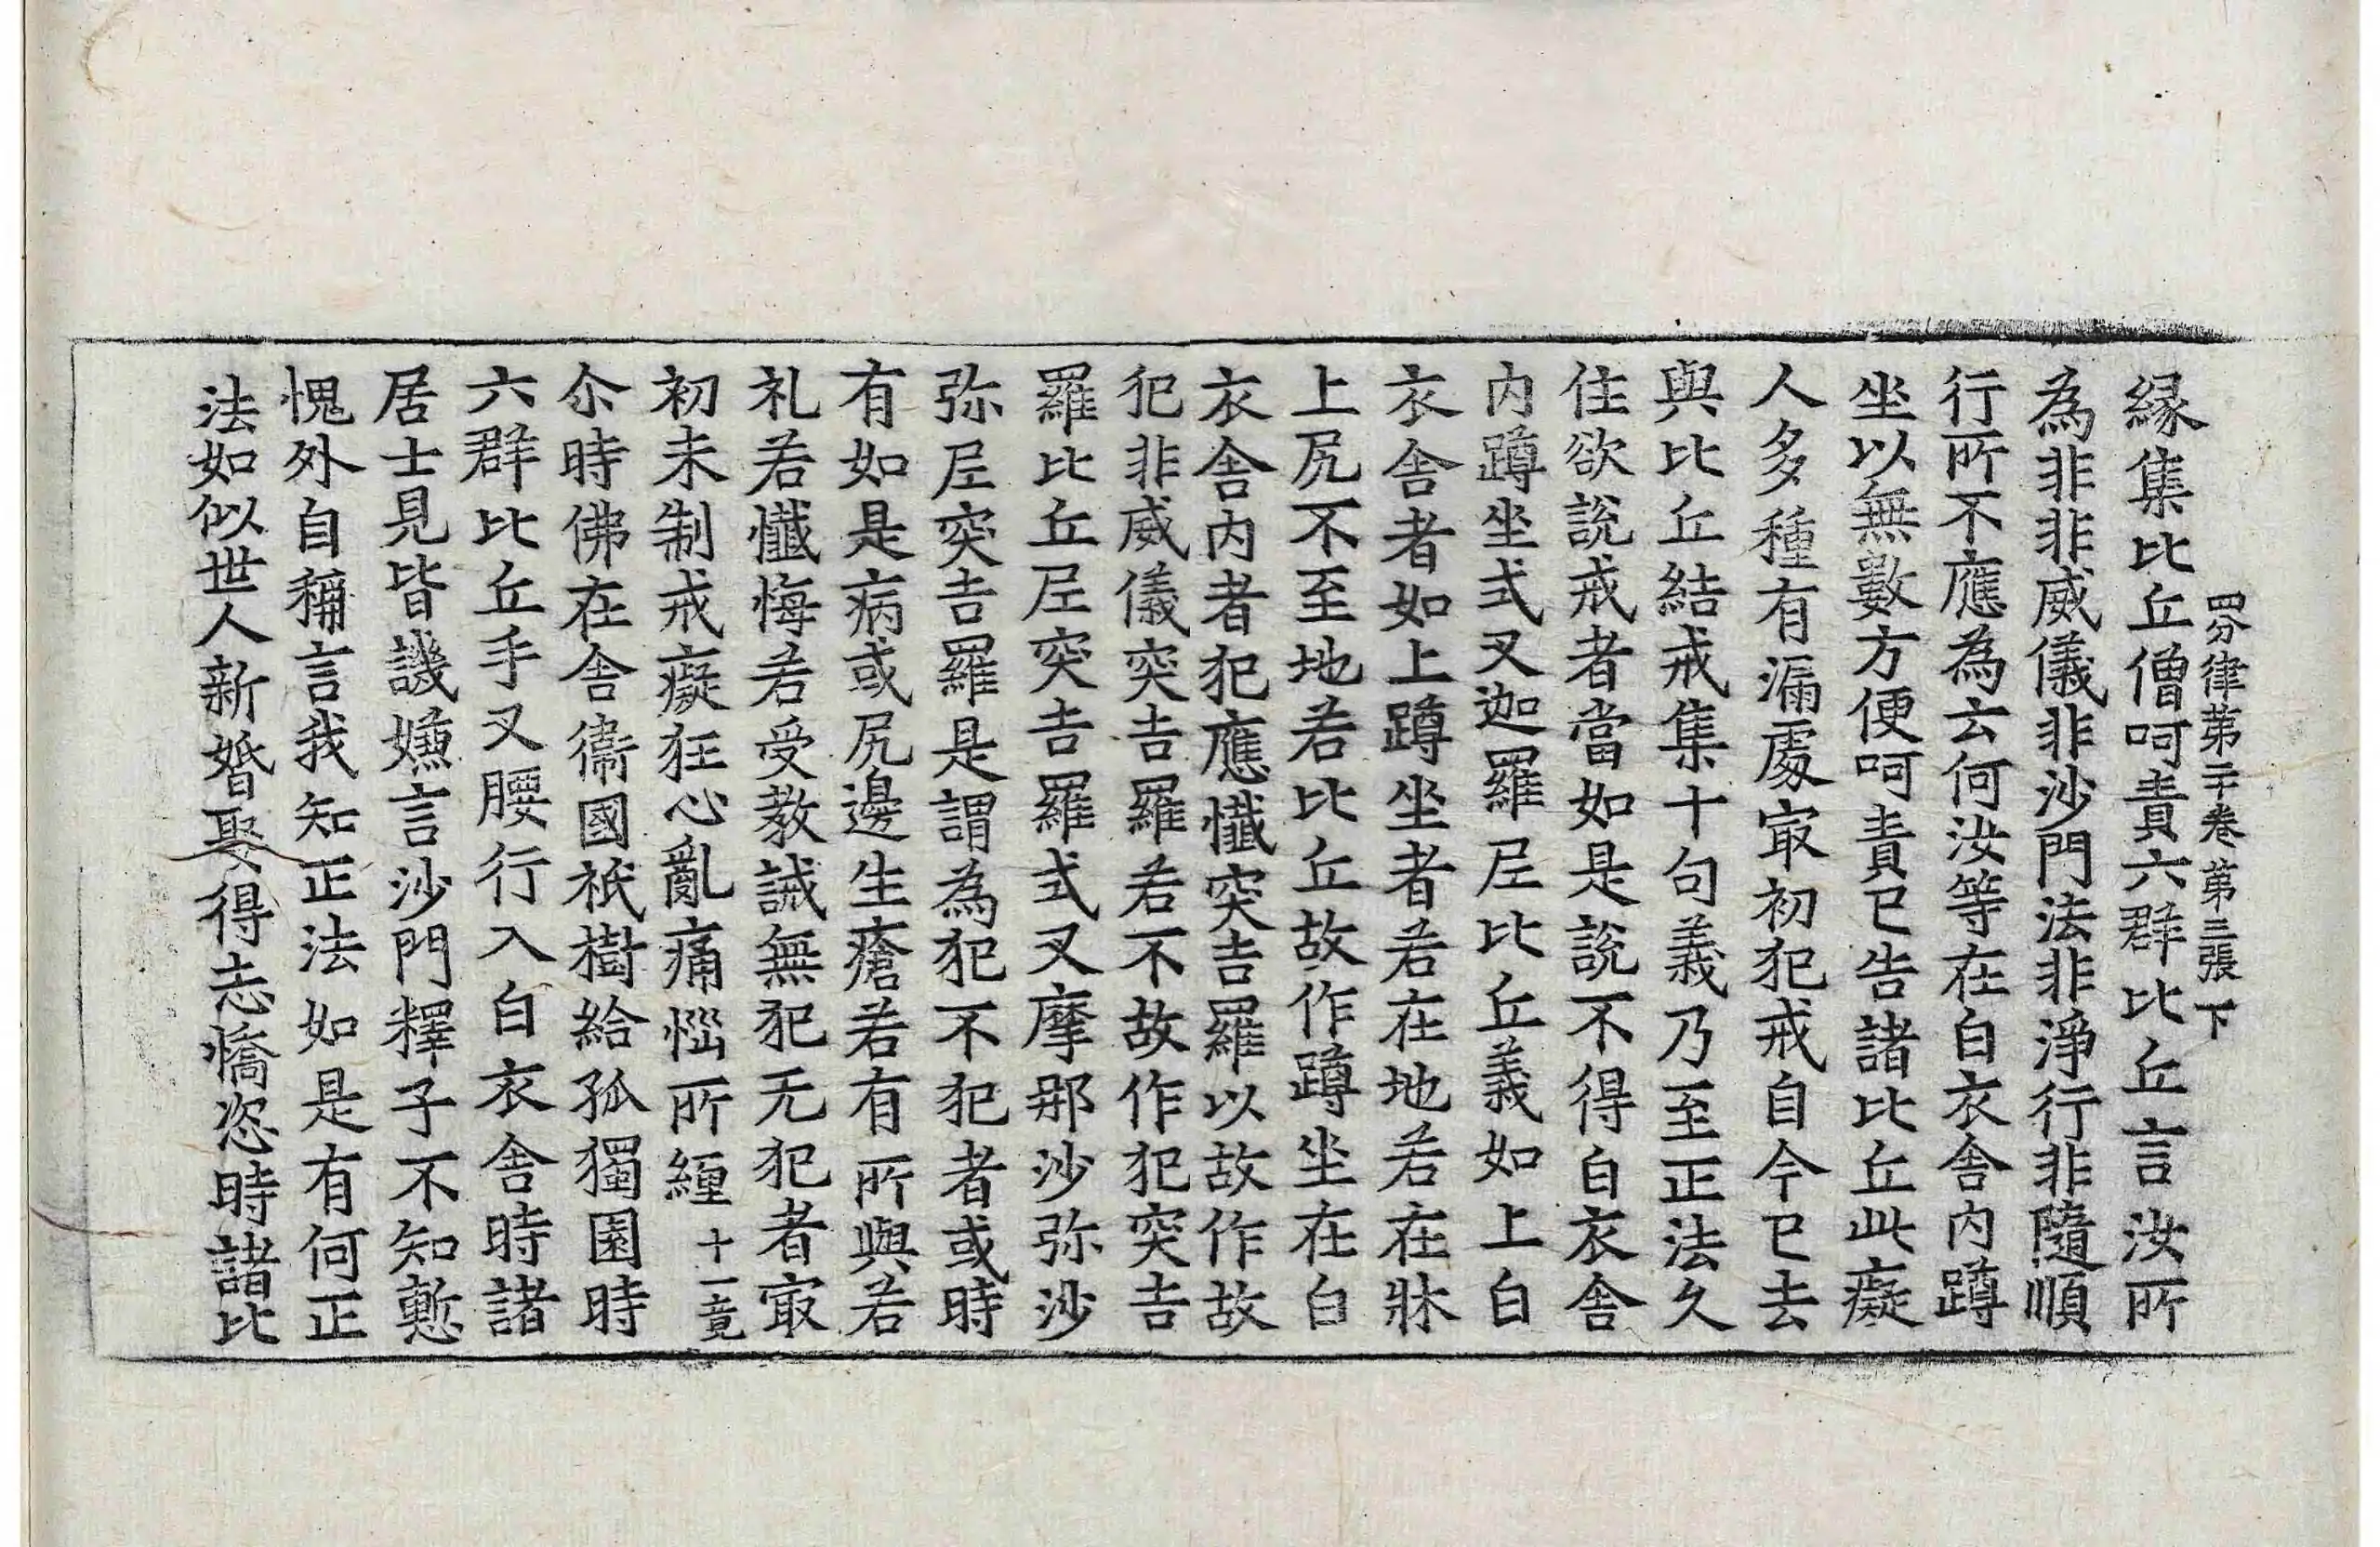 四分律苐二十卷 苐三張 下
縁集比丘僧呵責六群比丘言汝所
為非非威儀非沙門法非淨行非隨順
行所不應為云何汝等在白衣舍内蹲
坐以無數方便呵責已告諸比丘此癡
人多種有漏處㝡初犯戒自今已去
與比丘結戒集十句義乃至正法久
住欲說戒者當如是說不得白衣舍
内蹲坐式叉迦羅尼比丘義如上白
衣舍者如上蹲坐者若在地若在牀
上尻不至地若比丘故作蹲坐在白
衣舍内者犯應懺突吉羅以故作故
犯非威儀突吉羅若不故作犯突吉
羅比丘尼突吉羅式叉摩那沙弥沙
弥尼突吉羅是謂為犯不犯者或時
有如是病或尻邊生瘡若有所與若
礼若懺悔若受教誡無犯无犯者㝡
初未制戒癡狂心亂痛惱所纏 十一竟
尒時佛在舍衞國祇樹給孤獨園時
六群比丘手叉腰行入白衣舍時諸
居士見皆譏嫌言沙門釋子不知慙
愧外自稱言我知正法如是有何正
法如似世人新婚娶得志憍恣時諸比